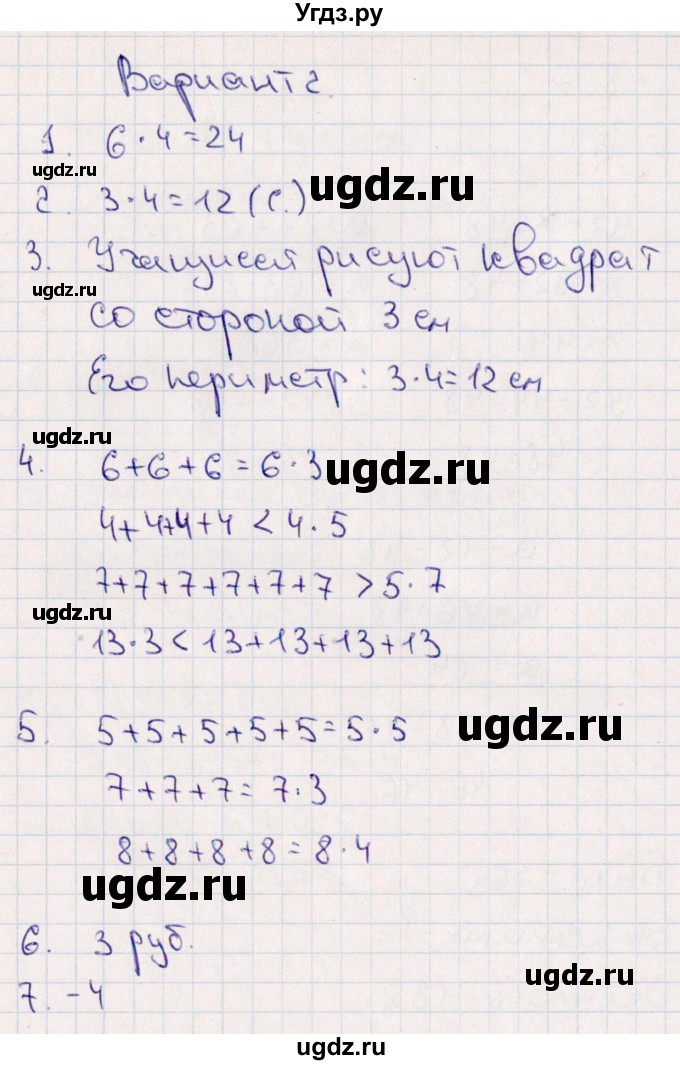 Угдз.ру
Вариант 2.
1. 6·4=24
ugdz.ru
ugdz.ru
2. 3·4=12 (с.)
3. Учащиеся рисуют квадрат
ugdz.ru
со стороной 3 см
Его периметр: 3·4=12 см
ugdz.ru
4. 6+6+6=6·3
ugdz.ru
4+4+4+4<4·5
7+7+7+7+7+7>5·7
ugdz.ru
13·3<13+13+13+13
5. 5+5+5+5+5=5·5
ugdz.ru
7+7+7=7·3
8+8+8+8=8·4
ugdz.ru
6. 3 руб.
ugdz.ru
7. -4
ugdz.ru